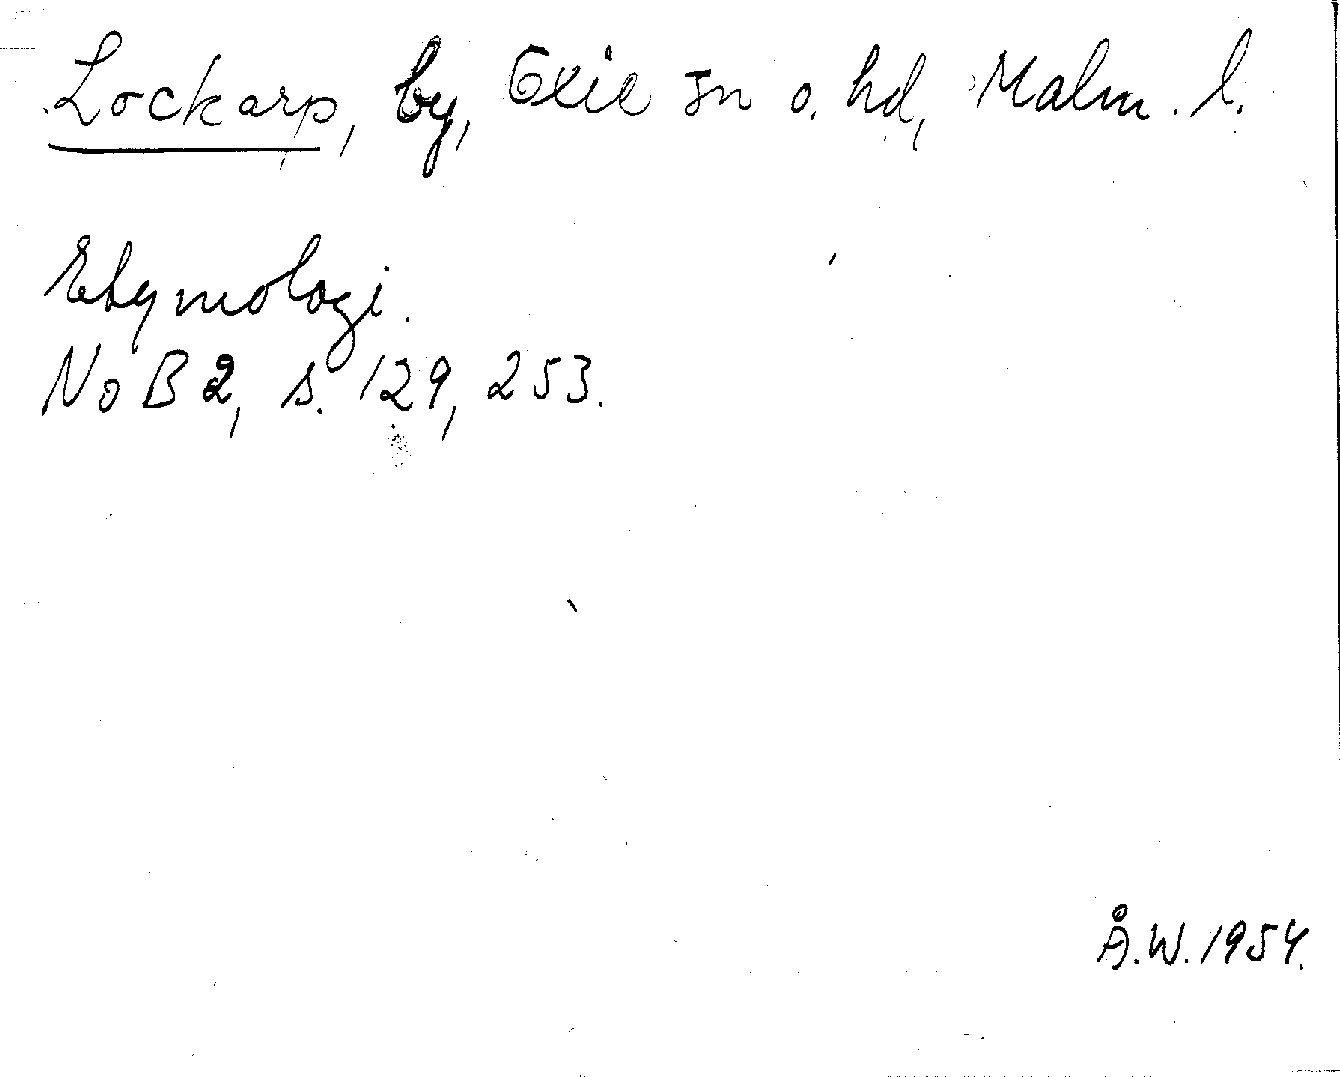 Lockarp, by, Oxie sn o. hd, Malm. l.
Etymologi.
NoB 2, s. 129, 253.
Å.W. 1954.